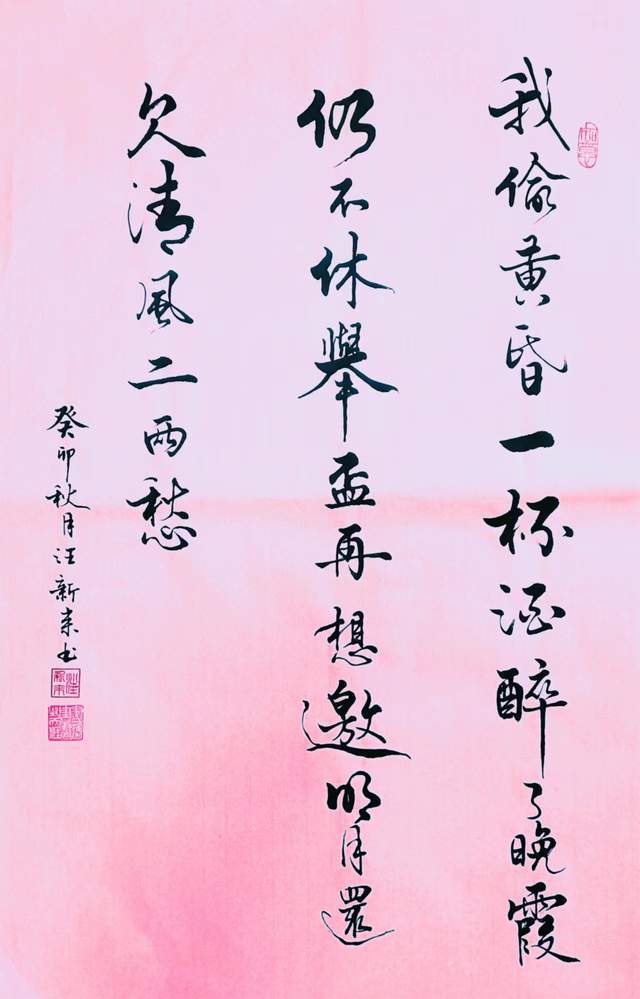 我偷黄昏一杯酒醉了晚霞
仍不休舉盃再想邀明月還
欠清風二兩愁
癸卯秋月汪新來书